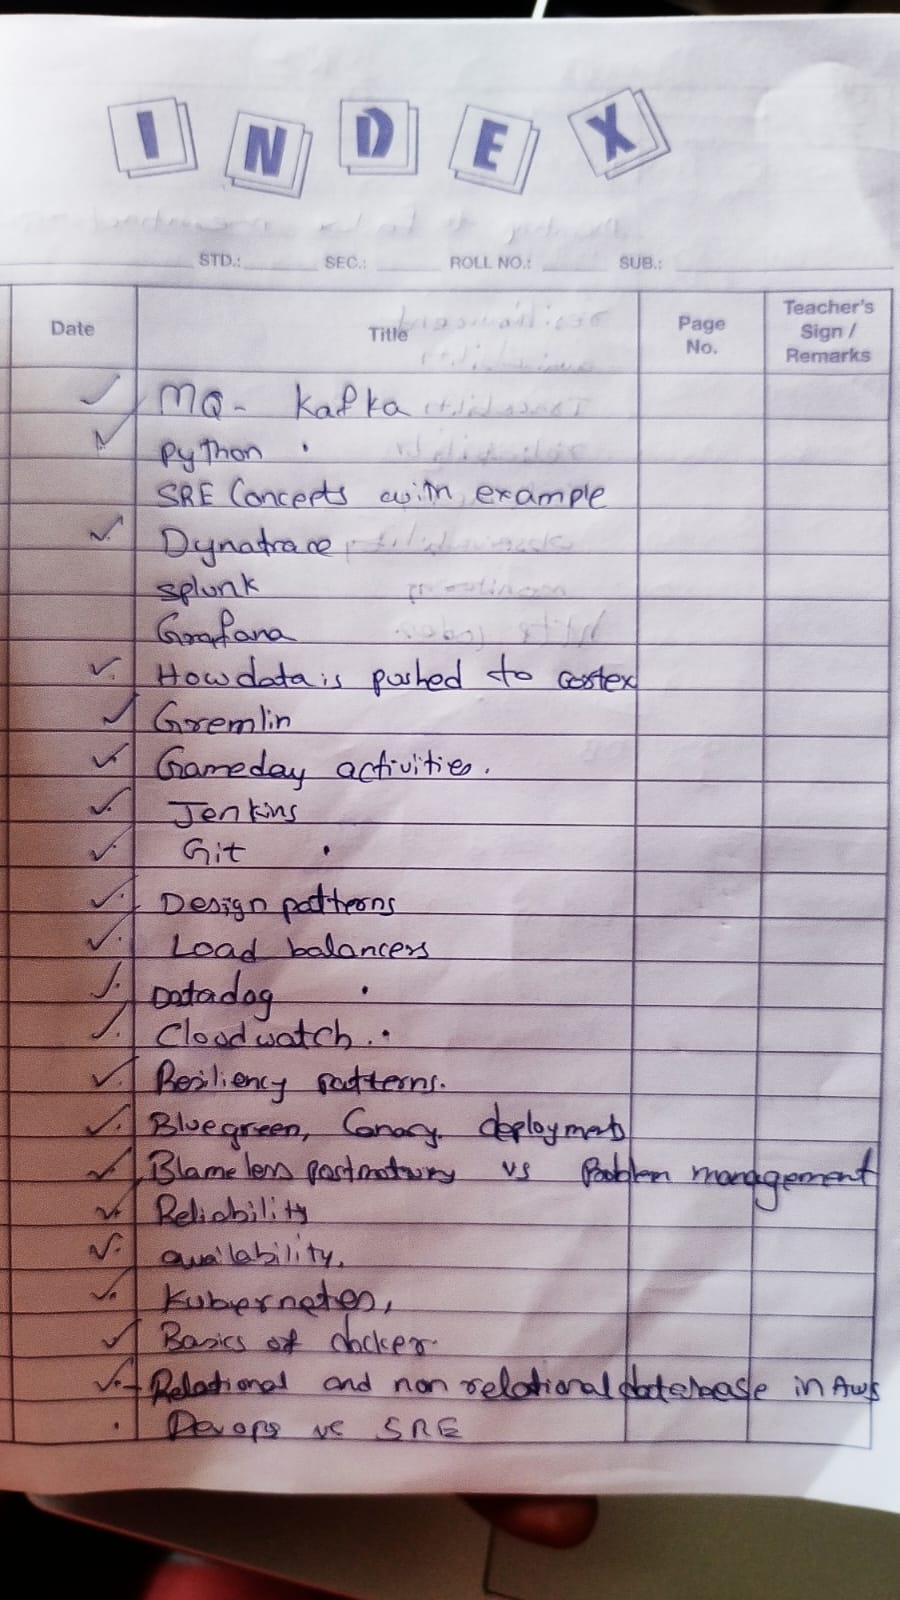 INDEX
STD.: SEC.: ROLL NO.: SUB.:
Date Title Page No. Teacher's Sign / Remarks
MQ - Kafka
Python
SRE Concepts with example
Dynatrace
splunk
Grafana
How data is pushed to costex
Gremlin
Gameday activities.
Jenkins
Git
Design patterns
Load balancers
Datadog
Cloudwatch.
Resiliency patterns.
Bluegreen, Canary deployments
Blameless vs Problem management
Reliability
availability,
Kubernetes,
Basics of docker
Relational and non relational database in Aws
Devops vs SRE